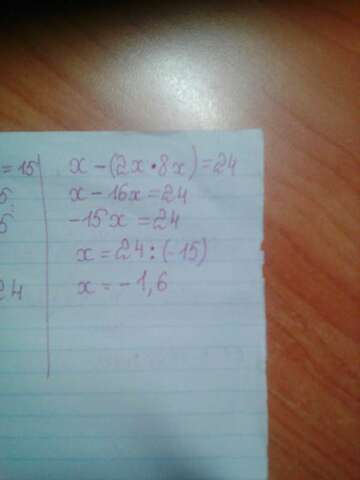 = 15
5
5
24
x - (2x • 8x) = 24
x - 16x = 24
-15x = 24
x = 24 : (-15)
x = - 1,6